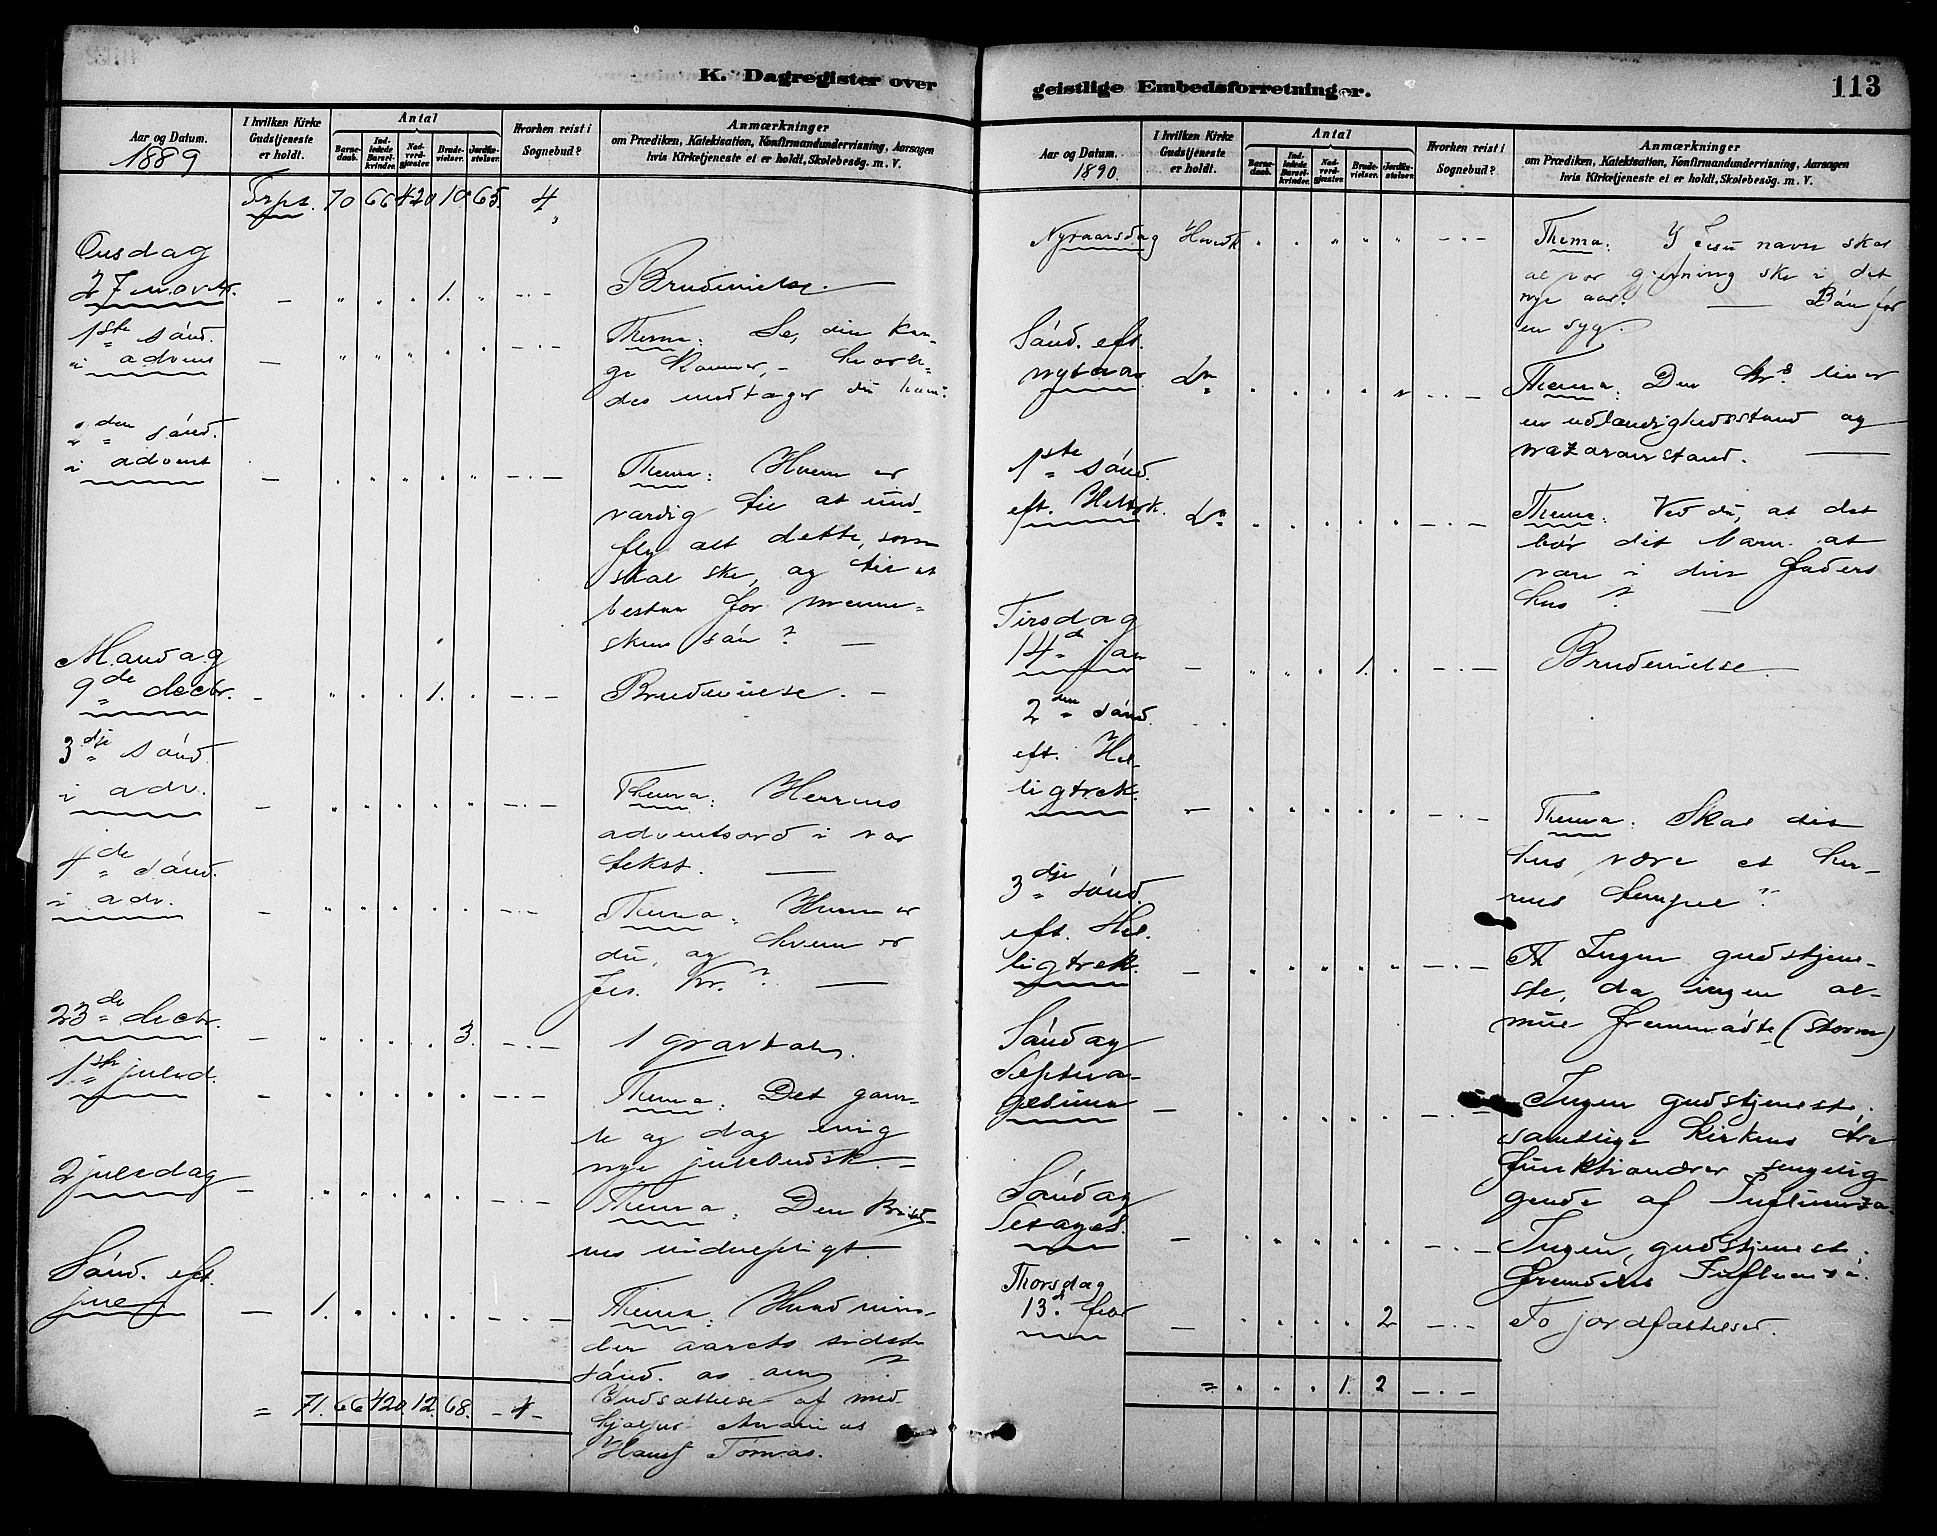 K. Dagregister over
Aar og Datum.
1889
I hvilken Kirke Gudstjeneste er holdt.
Antal
Barne-daab.
Ind-ledede Barsel-kvinder.
Nad-verd-gjæster.
Brude-vielser.
Jordfæ-stelser.
Hvorhen reist i Sognebud?
Anmærkninger
om Prædiken, Katekisation, Konfirmandundervisning, Aarsagen
hvis Kirketjeneste ei er holdt, Skolebesøg. m. V.
Trpt. 70 66 420 10 65. 4
Onsdag
27 novbr. — " " " 1. " -.- Brudevielse.
1ste sónd.
i advent — " " " " " -.- Thema: Se, din kon-
ge kommer, - hvorle-
des modtager du ham?
2den sónd.
i advent — Thema: Hvem er
værdig til at und-
fly alt dette, som
skal ske, og til at
bestaa for menne-
skens són? —
Mandag
9de decbr. - " " " 1. " -.- Brudevielse. -
3dje sónd.
i adv. — Thema: Herrens
adventsord i vor
tekst. —
4de sónd.
i adv. — Thema: Hvem er
du, og hvem er
Jes. Kr.? —
23de decbr. — 3. -.- 1 gravtale.
1ste juled. — Thema: Det gam-
le og dog evig
nye julebudsk. -
2 juledag — Thema: Den
Sónd. eft.
jul — 1. Thema:
den aarets sidste
sónd. os om?
= 71. 66 420. 12. 68. -4- Indsættelse af med-
hjælper
Tómas.
geistlige Embedsforretninger.
113
Aar og Datum.
1890.
I hvilken Kirke Gudstjeneste er holdt.
Antal
Barne-daab.
Ind-ledede Barsel-kvinder.
Nad-verd-gjæster.
Brude-vielser.
Jordfæ-stelser.
Hvorhen reist i Sognebud?
Anmærkninger
om Prædiken, Katekisation, Konfirmandundervisning, Aarsagen
hvis Kirketjeneste ei er holdt, Skolebesøg. m. V.
Nytaarsdag Thema: I Jesu navn skal
al vor gjerning ske i det
nye aar. — Bón for
en syg.
Sónd. eft.
nytaar Do Thema: Den Kr's liv er
en udlændighedsstand og
nazaræerstand. —
1ste sónd.
eft. Heltrk. Do Thema: Ved du, at det
bór dit barn at
være i din faders
hus? —
Tirsdag
14d jan — 1. -.- Brudevielse.
2den sónd.
eft. Hel-
ligtrek. — Thema: Skal dit
hus være et her-
rens tempel?
3dje sónd.
eft. Hel.
ligtrek. — Ingen gudstjene-
ste, da ingen al-
mue fremmódte (storm)
Sóndag
Septua-
gesima — Ingen gudstjeneste.
samtlige kirkens tre
funktionærer sengelig
gende af Influenza.
Sóndag
Sexages. — Ingen gudstjeneste.
fremdeles Influenza.
Thorsdag
13d febr — 2 -.- To jordfæstelser.
= 1. 2 -.-